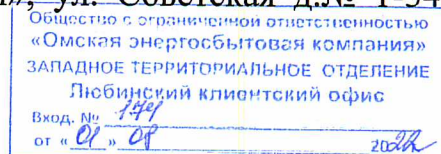 ул. Советская д.№ 1-54
Общество с ограниченной ответственностью
«Омская энергосбытовая компания»
ЗАПАДНОЕ ТЕРРИТОРИАЛЬНОЕ ОТДЕЛЕНИЕ
Любинский клиентский офис
Вход. № 174
от « 01 » 08 2022